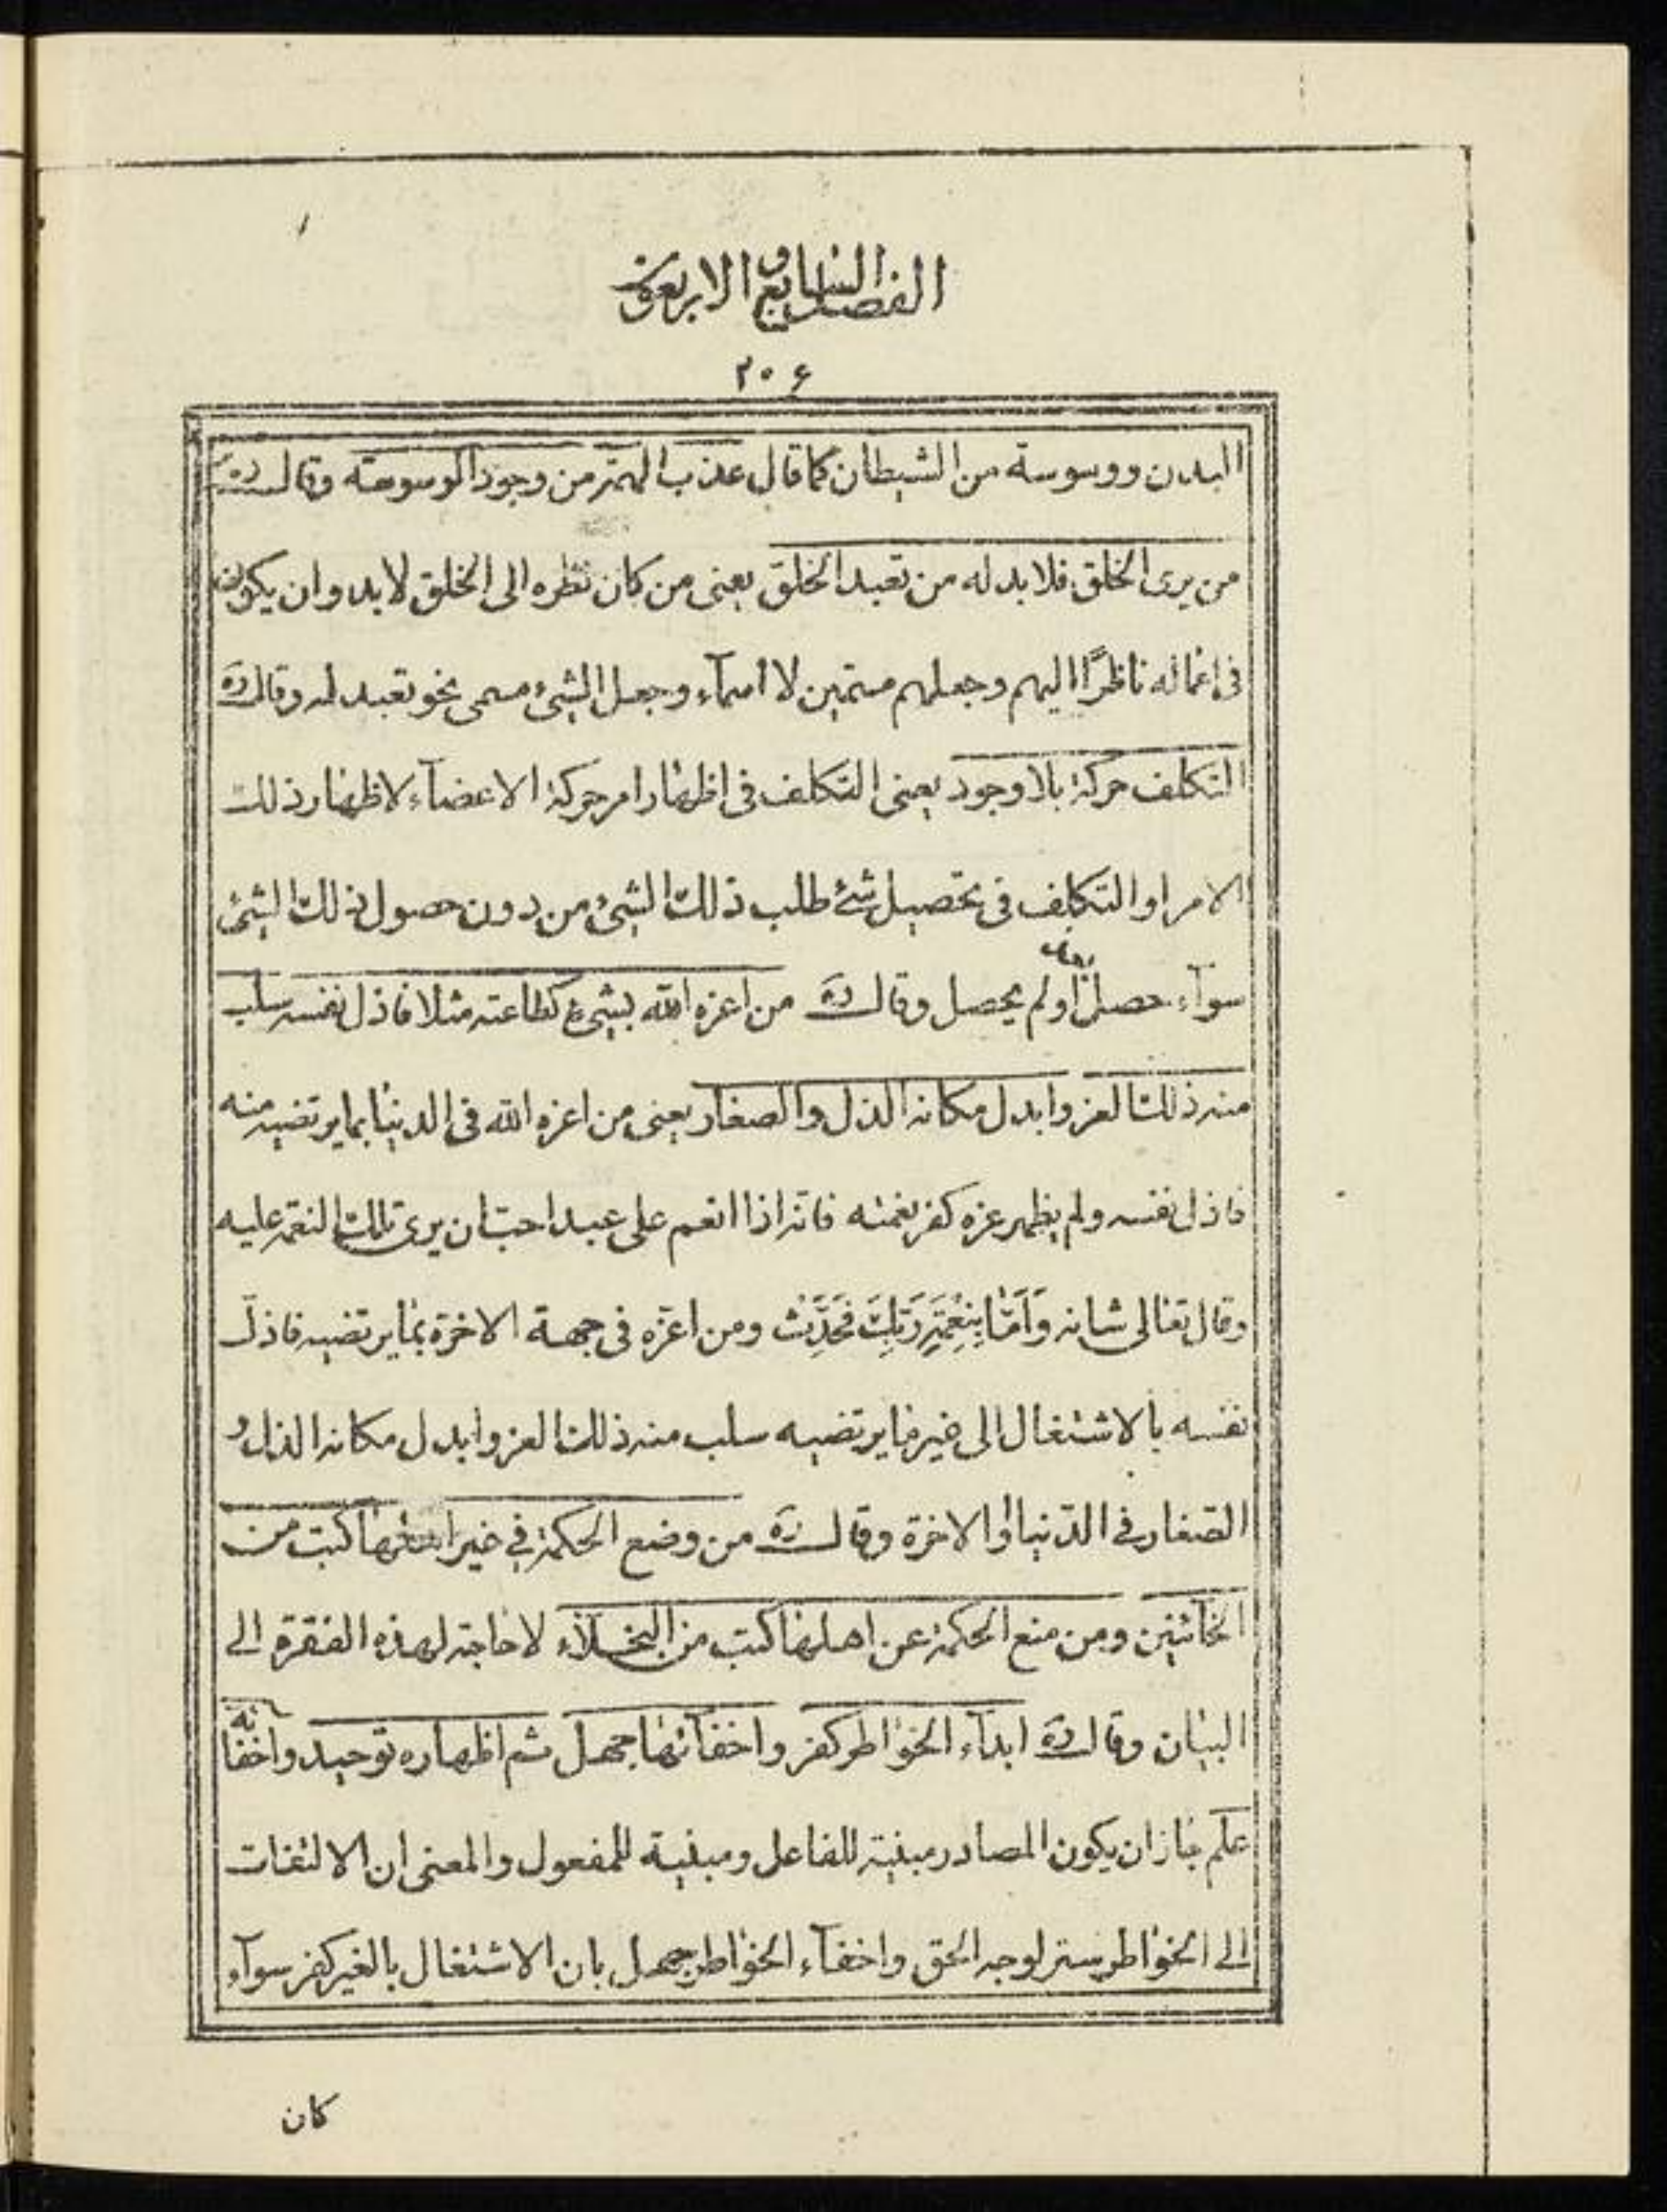 الفصل السابع والاربعون
٢٠٦
البدن ووسوسة من الشيطان كما قال عذب الهمّ من وجود الوسوسة وقال ره
من يرى الخلق فلا بد له من تعبد الخلق يعنى من كان نظره الى الخلق لابد وان يكون
فى اعماله ناظرًا اليهم وجعلهم مسمّين لا اسمآء وجعل الشىء مسمى نحو تعبد له وقال ره
التكلف حركة بلا وجود يعنى التكلف فى اظهار امر حركة الاعضآء لاظهار ذلك
الامر او التكلف فى تحصيل شئ طلب ذلك الشىء من دون حصول ذلك الشئ
سوآء حصل او لم يحصل وقال ره من اعزه الله بشىء كطاعته مثلا فاذل نفسه سلب
منه ذلك العز وابدل مكانه الذل والصغار يعنى من اعزه الله فى الدنيا بما يرتضيه منه
فاذل نفسه ولم يظهر عزه كفر نعمته فانه اذا انعم على عبد احبّ ان يرى تلك النعمة عليه
وقال تعالى شانه وَاَمَّا بِنِعْمَةِ رَبِّكَ فَحَدِّثْ ومن اعزّه فى جهة الاخرة بما يرتضيه فاذلّ
نفسه بالاشتغال الى غير ما يرتضيه سلب منه ذلك العز وابدل مكانه الذل و
الصغار فى الدّنيا والاخرة وقال ره من وضع الحكمة فى غير اهلها كتب من
الخآئنين ومن منع الحكمة عن اهلها كتب من البخلآء لا حاجة لهذه الفقرة الى
البيان وقال ره ابدآء الخواطر كفر واخفآئها جهل ثم اظهاره توحيد واخفائه
علم جاز ان يكون المصادر مبنية للفاعل ومبنية للمفعول والمعنى ان الالتفات
الى الخواطر ستر لوجه الحق واخفآء الخواطر جهل بان الاشتغال بالغير كفر سوآء
كان